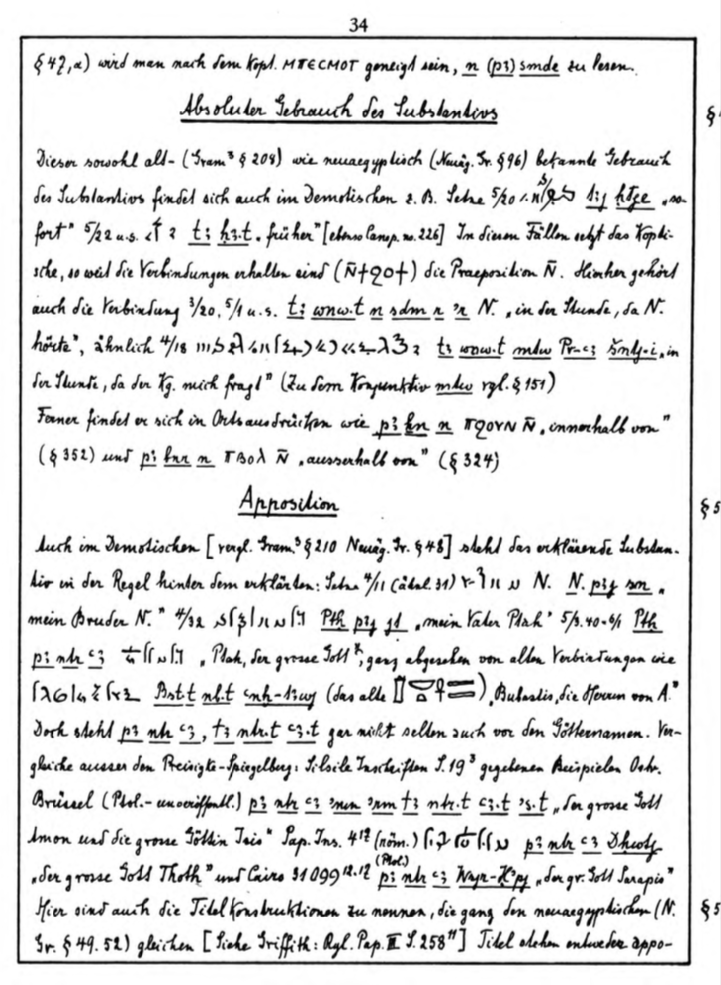 34
§ 47, α) wird man nach dem Kopt. ⲙⲡⲉⲥⲙⲟⲧ geneigt sein, n (pꜣ) smde zu lesen.
Absoluter Gebrauch des Substantivs
§
Dieser sowohl alt- (Gram³ § 208) wie neuaegyptisch (Neuäg. Gr. § 96) bekannte Gebrauch
des Substantivs findet sich auch im Demotischen z. B. Setne 5/20 „so-
fort" 5/22 u. s. „früher" [ebenso Canop. no. 226] In diesen Fällen setzt das Kopti-
sche, so weit die Verbindungen erhalten sind (ⲛ̄ϯϩⲟϯ) die Praeposition ⲛ̄. Hierher gehört
auch die Verbindung 3/20, 5/1 u. s. tꜣ wnw.t n sdm r ꜥr N. „in der Stunde, da N.
hörte", ähnlich 4/18 tꜣ wnw.t mtw Pr-ꜥꜣ šntj-i „in
der Stunde, da der Kg. mich fragt" (Zu dem Konjunktiv mtw vgl. § 151)
Ferner findet er sich in Ortsausdrücken wie pꜣ ẖn n ⲡϩⲟⲩⲛ ⲛ̄ „innerhalb von"
(§ 352) und pꜣ bnr n ⲡⲃⲟⲗ ⲛ̄ „ausserhalb von" (§ 324)
Apposition
§ 5
Auch im Demotischen [vergl. Gram.³ § 210 Neuäg. Gr. § 48] steht das erklärende Substan-
tiv in der Regel hinter dem erklärten: Setne 4/11 N. N. pꜣj sn „
mein Bruder N." 4/32 Ptḥ pꜣj jt „mein Vater Ptah" 5/3.40-6/1 Ptḥ
pꜣ nṯr ꜥꜣ „Ptah, der grosse Gott", ganz abgesehen von allen Verbindungen wie
Bst.t nb.t ꜥnḫ-tꜣwj (das alte ) „Bubastis, die Herrin von A."
Doch steht pꜣ nṯr ꜥꜣ, tꜣ nṯr.t ꜥꜣ.t gar nicht selten auch vor den Götternamen. Ver-
gleiche ausser den Preisigke-Spiegelberg: Silsile Inschriften S. 19³ gegebenen Beispielen Ostr.
Brüssel (Ptol.- unveröffentl.) pꜣ nṯr ꜥꜣ ꜣmn ꜣrm tꜣ nṯr.t ꜥꜣ.t ꜣs.t „der grosse Gott
Amon und die grosse Göttin Isis" Pap. Ins. 4¹⁷ (röm.) pꜣ nṯr ꜥꜣ Dḥwtj
„der grosse Gott Thoth" und Cairo 31099 (Ptol.) pꜣ nṯr ꜥꜣ Wsjr-Ḥꜥpj „der gr. Gott Sarapis"
Hier sind auch die Titelkonstruktionen zu nennen, die ganz den neuaegyptischen (N.
§ 5
Gr. § 49. 52) gleichen [Siehe Griffith: Ryl. Pap. III S. 258¹¹] Titel stehen entweder appo-